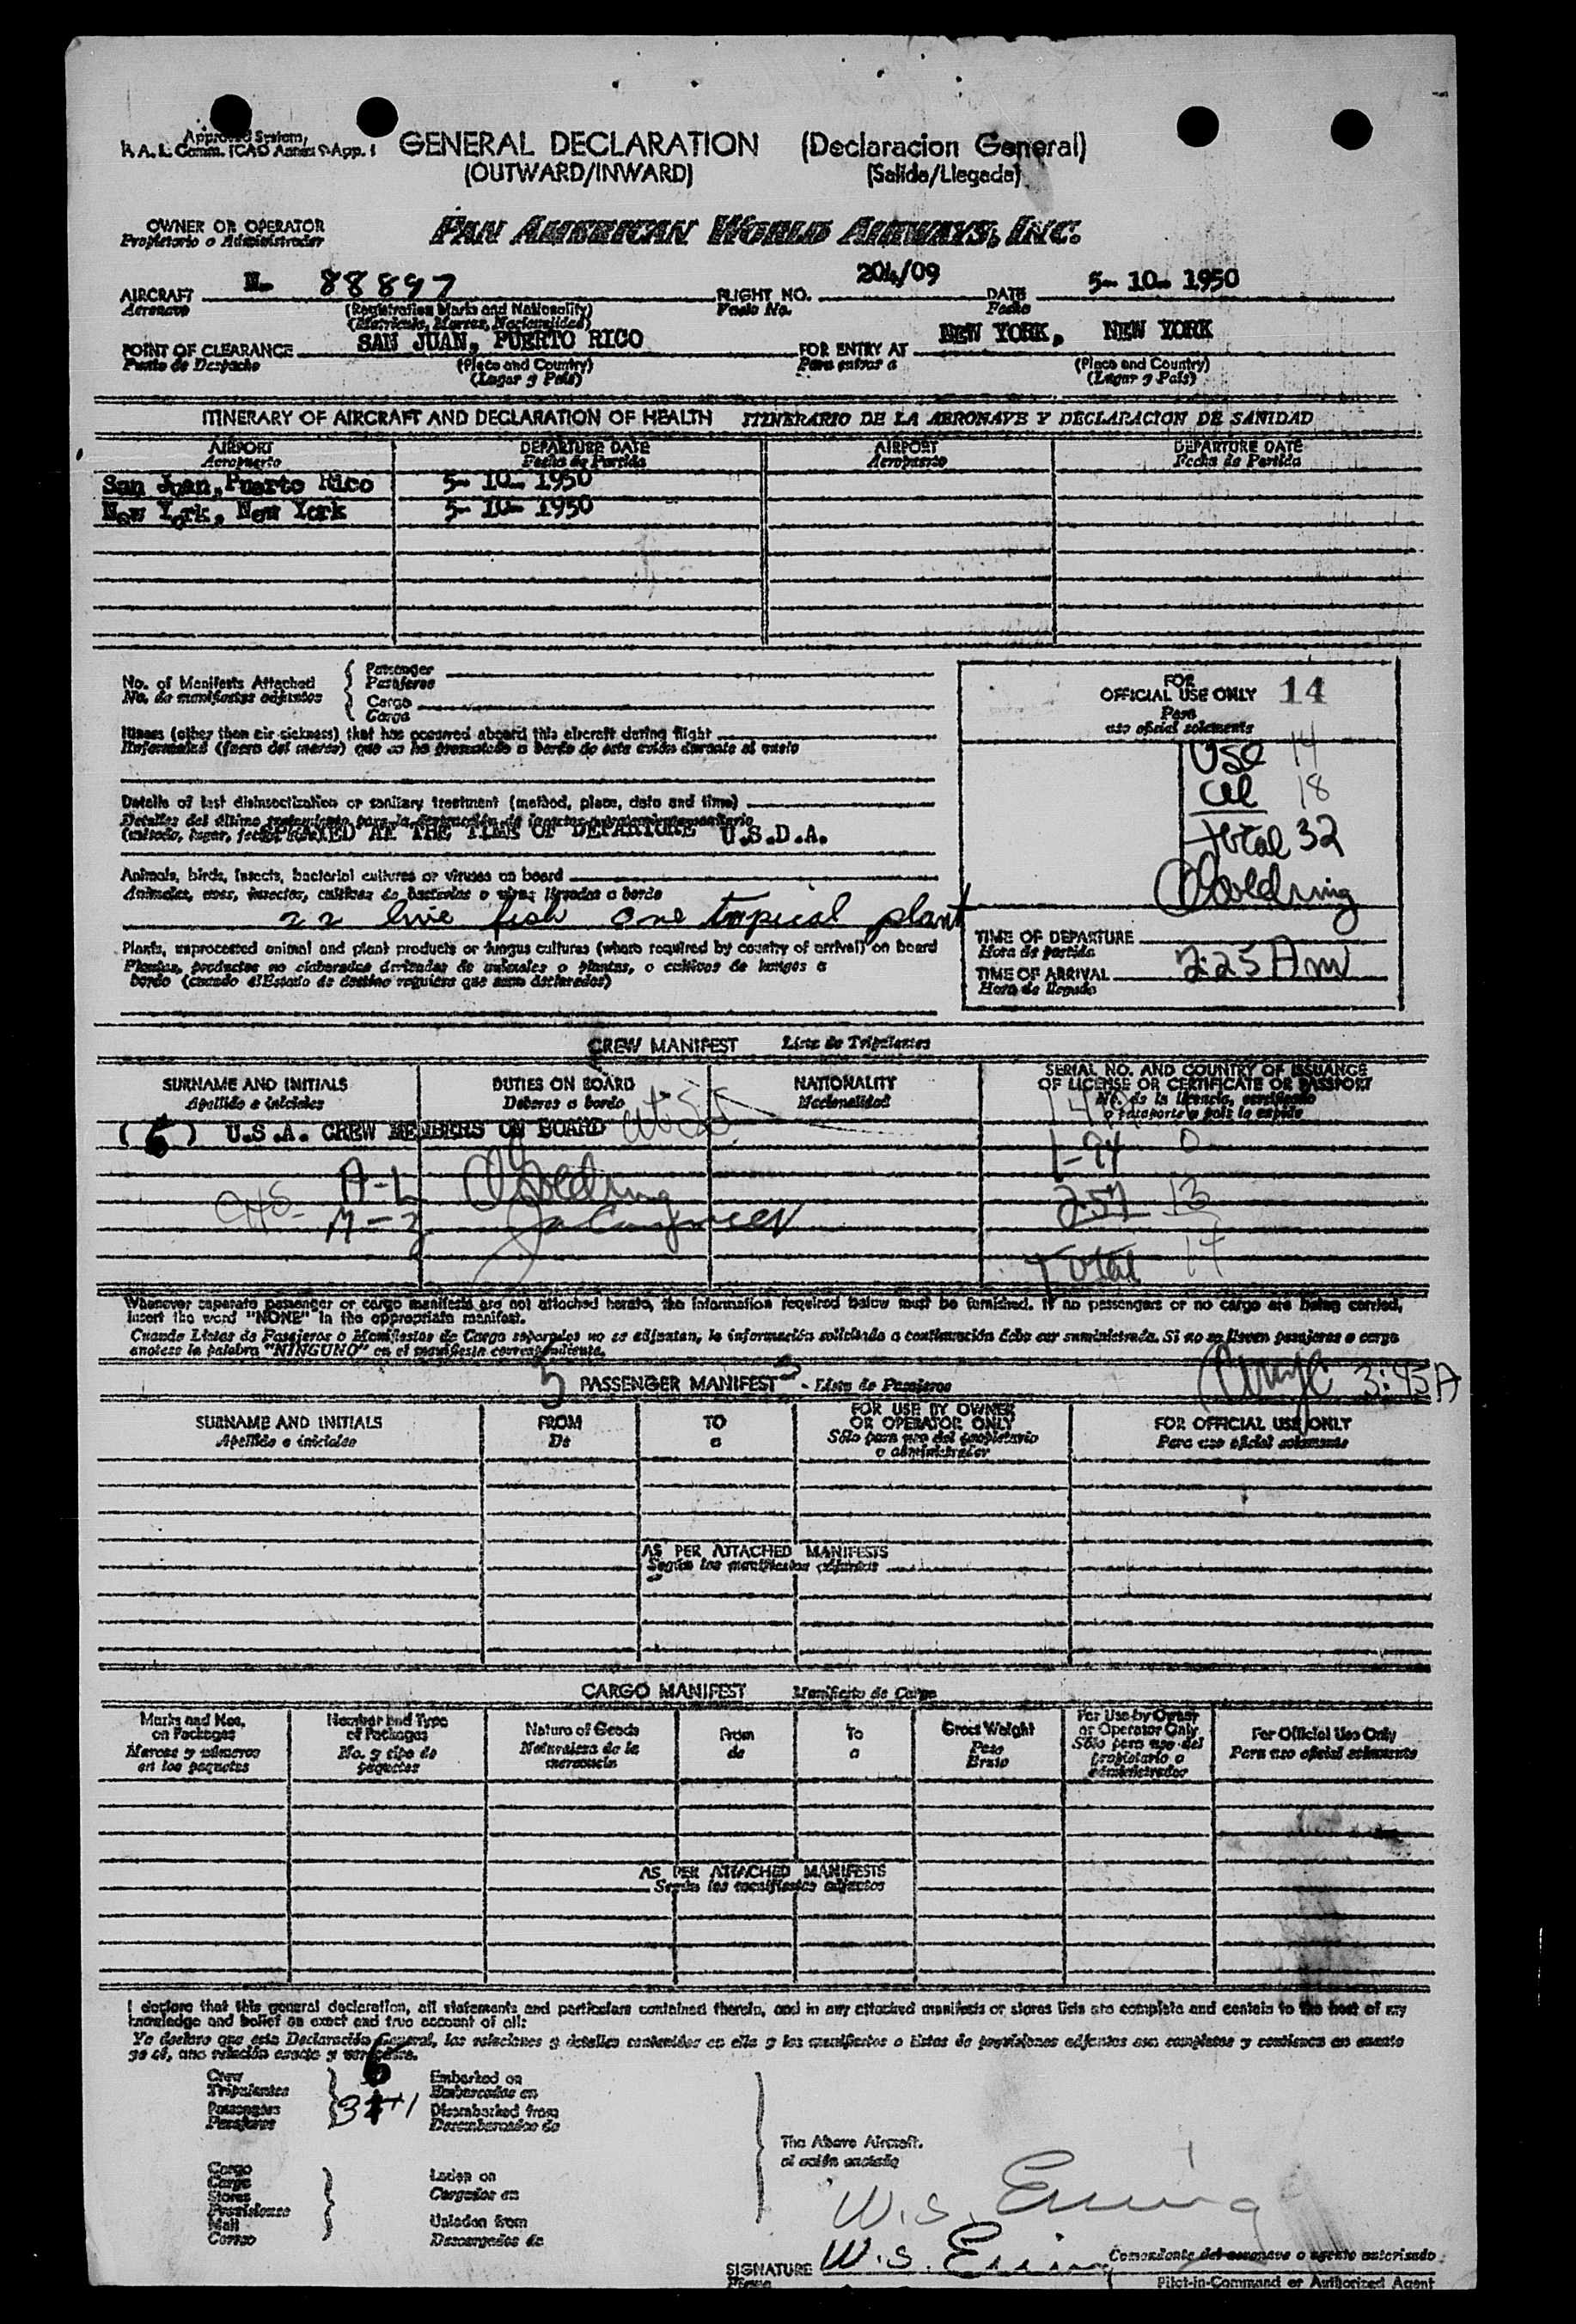 Approved System,
I.A.L. Comm. ICAO Annex 9-App. 1
GENERAL DECLARATION (Declaracion General)
(OUTWARD/INWARD) (Salida/Llegada)
OWNER OR OPERATOR
Propietario o Administrador
PAN AMERICAN WORLD AIRWAYS, INC.
AIRCRAFT N- 88897 FLIGHT NO. 204/09 DATE 5- 10- 1950
Aeronave (Registration Marks and Nationality) Vuelo No. Fecha
(Matricula, Marcas, Nacionalidad)
POINT OF CLEARANCE SAN JUAN, PUERTO RICO FOR ENTRY AT NEW YORK, NEW YORK
Punto de Despacho (Place and Country) Para entrar a (Place and Country)
(Lugar y País) (Lugar y País)
ITINERARY OF AIRCRAFT AND DECLARATION OF HEALTH ITINERARIO DE LA AERONAVE Y DECLARACION DE SANIDAD
AIRPORT DEPARTURE DATE AIRPORT DEPARTURE DATE
Aeropuerto Fecha de Partida Aeropuerto Fecha de Partida
San Juan, Puerto Rico 5- 10- 1950
New York, New York 5- 10- 1950
No. of Manifests Attached
No. de manifiestos adjuntos
Passenger
Pasajeros
Cargo
Carga
Illness (other than air sickness) that has occurred aboard this aircraft during flight
Enfermedad (fuera del mareo) que se ha presentado a bordo de este avión durante el vuelo
Details of last disinsectization or sanitary treatment (method, place, date and time)
Detalles del último tratamiento para la
SPRAYED AT THE TIME OF DEPARTURE U.S.D.A.
Animals, birds, insects, bacterial cultures or viruses on board
Animales, aves, insectos, cultivos de bacterias o virus llevados a bordo
22 live fish one tropical plant
Plants, unprocessed animal and plant products or fungus cultures (where required by country of arrival) on board
Plantas, productos no elaborados derivados de animales o plantas, o cultivos de hongos a
bordo (cuando el Estado de destino requiera que sean declarados)
FOR
OFFICIAL USE ONLY 14
Para
uso oficial solamente
USC 14
al 18
Total 32
Goldring
TIME OF DEPARTURE
Hora de partida
TIME OF ARRIVAL 2:25 Am
Hora de llegada
CREW MANIFEST Lista de Tripulantes
SURNAME AND INITIALS DUTIES ON BOARD NATIONALITY SERIAL NO. AND COUNTRY OF ISSUANCE
OF LICENSE OR CERTIFICATE OR PASSPORT
Apellido e iniciales Deberes a bordo Nacionalidad No. de la licencia, certificado
o pasaporte y país lo expide
(6) U.S.A. CREW MEMBERS ON BOARD
I-94 0
A-L Goldring
CHS- M-Z 257 13
Total 17
Whenever separate passenger or cargo manifests are not attached hereto, the information required below must be furnished. If no passengers or no cargo are being carried,
insert the word "NONE" in the appropriate manifest.
Cuando Listas de Pasajeros o Manifiestos de Carga separados no se adjuntan, la información solicitada a continuación debe ser suministrada. Si no se llevan pasajeros o carga
anotese la palabra "NINGUNO" en el manifiesto correspondiente.
3:45 A
5 PASSENGER MANIFEST - Lista de Pasajeros
SURNAME AND INITIALS FROM TO FOR USE BY OWNER
OR OPERATOR ONLY FOR OFFICIAL USE ONLY
Apellido e iniciales De a Sólo para uso del propietario
o administrador Para uso oficial solamente
AS PER ATTACHED MANIFESTS
Según los manifiestos adjuntos
CARGO MANIFEST Manifiesto de Carga
Marks and Nos.
on Packages
Marcas y números
en los paquetes
Number and Type
of Packages
No. y tipo de
paquetes
Nature of Goods
Naturaleza de la
mercancía
From
de
To
a
Gross Weight
Peso
Bruto
For Use by Owner
or Operator Only
Sólo para uso del
propietario o
administrador
For Official Use Only
Para uso oficial solamente
AS PER ATTACHED MANIFESTS
Según los manifiestos adjuntos
I declare that this general declaration, all statements and particulars contained therein, and in any attached manifests or stores lists are complete and contain to the best of my
knowledge and belief an exact and true account of all:
Yo declaro que esta Declaración General, las relaciones y detalles contenidos en ella y los manifiestos o listas de provisiones adjuntas son completos y contienen en cuanto
yo sé, una relación exacta y verdadera.
Crew 6 Embarked on
Tripulantes Embarcados en
Passengers Disembarked from
Pasajeros Desembarcados de
The Above Aircraft.
el avión anotado
Cargo
Carga
Stores
Provisiones
Mail
Correo
Laden on
Cargados en
Unladen from
Descargados de
W.S. Ewing
SIGNATURE W.S. Ewing
Firma
Comandante del aeronave o agente autorizado
Pilot-in-Command or Authorized Agent